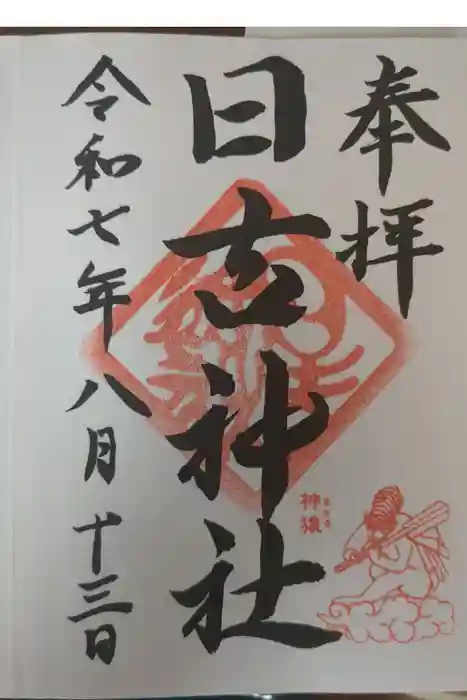 奉拝
日吉神社
神猿
令和七年八月十三日